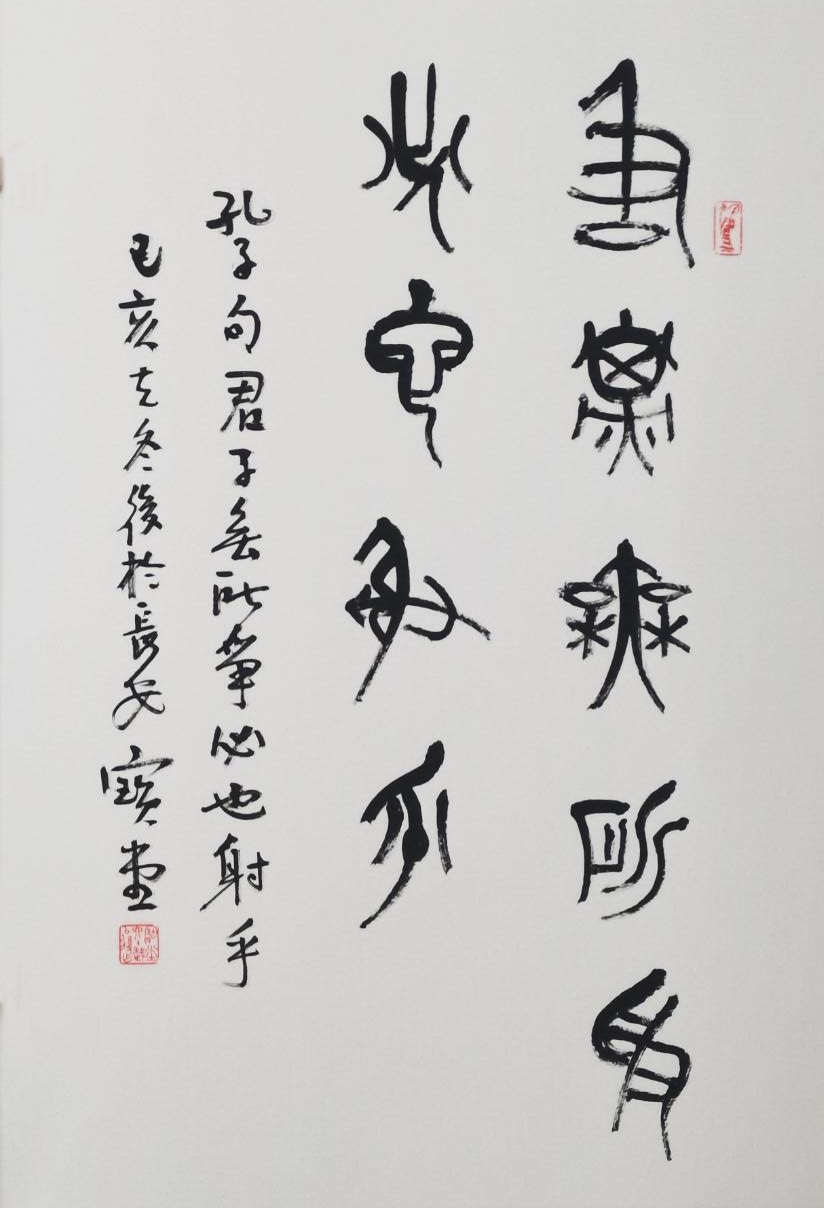 君子無所爭
必也射乎
孔子句君子無所爭必也射乎
己亥立冬後於長安寶堂